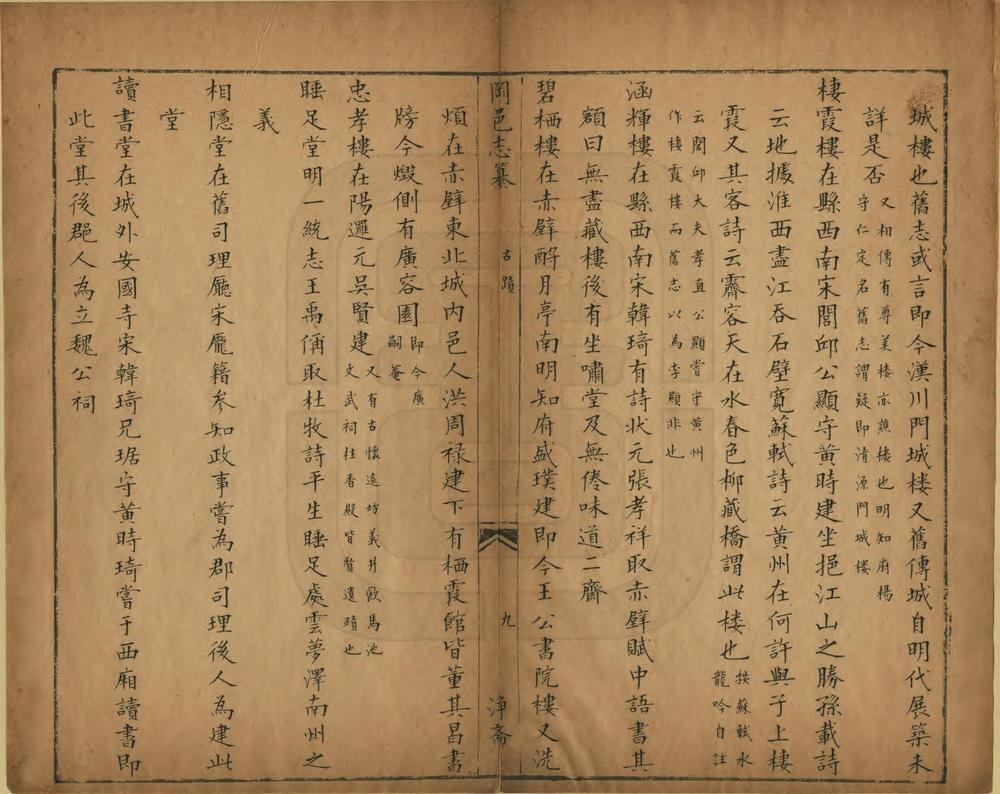 城樓也舊志或言即今漢川門城楼又舊傳城自明代展築未
詳是否又相傳有尊美楼亦譙楼也明知府楊
守仁定名舊志謂疑即清源門城楼
棲霞樓在縣西南宋閭邱公顯守黄時建坐挹江山之勝孫載詩
云地據淮西盡江吞石壁寛蘇軾詩云黄州在何許與子上棲
霞又其客詩云霽容天在水春色柳藏橋謂此楼也按蘇軾水
龍吟自註
云閭邱大夫孝直公顯嘗守黄州
作棲霞樓而舊志以為李顯非也
涵輝樓在縣西南宋韓琦有詩状元張孝祥取赤壁賦中語書其
額曰無盡藏樓後有坐嘯堂及無倦味道二齋
碧栖樓在赤壁酹月亭南明知府盛璞建即今王公書院樓又洗
岡邑志纂 古蹟 九 浄斋
煩在赤壁東北城内邑人洪周禄建下有栖霞館皆董其昌書
牓今燬側有廣容園即今廣
嗣菴
忠孝樓在陽邏元吳賢建又有古懷遠坊義井飲馬池
文武祠桂香殿皆賢遺蹟也
睡足堂明一統志王禹偁取杜牧詩平生睡足處雲夢澤南州之
義
相隱堂在舊司理廳宋龐籍参知政事嘗為郡司理後人為建此
堂
讀書堂在城外安國寺宋韓琦兄琚守黄時琦嘗于西廂讀書即
此堂其後郡人為立魏公祠